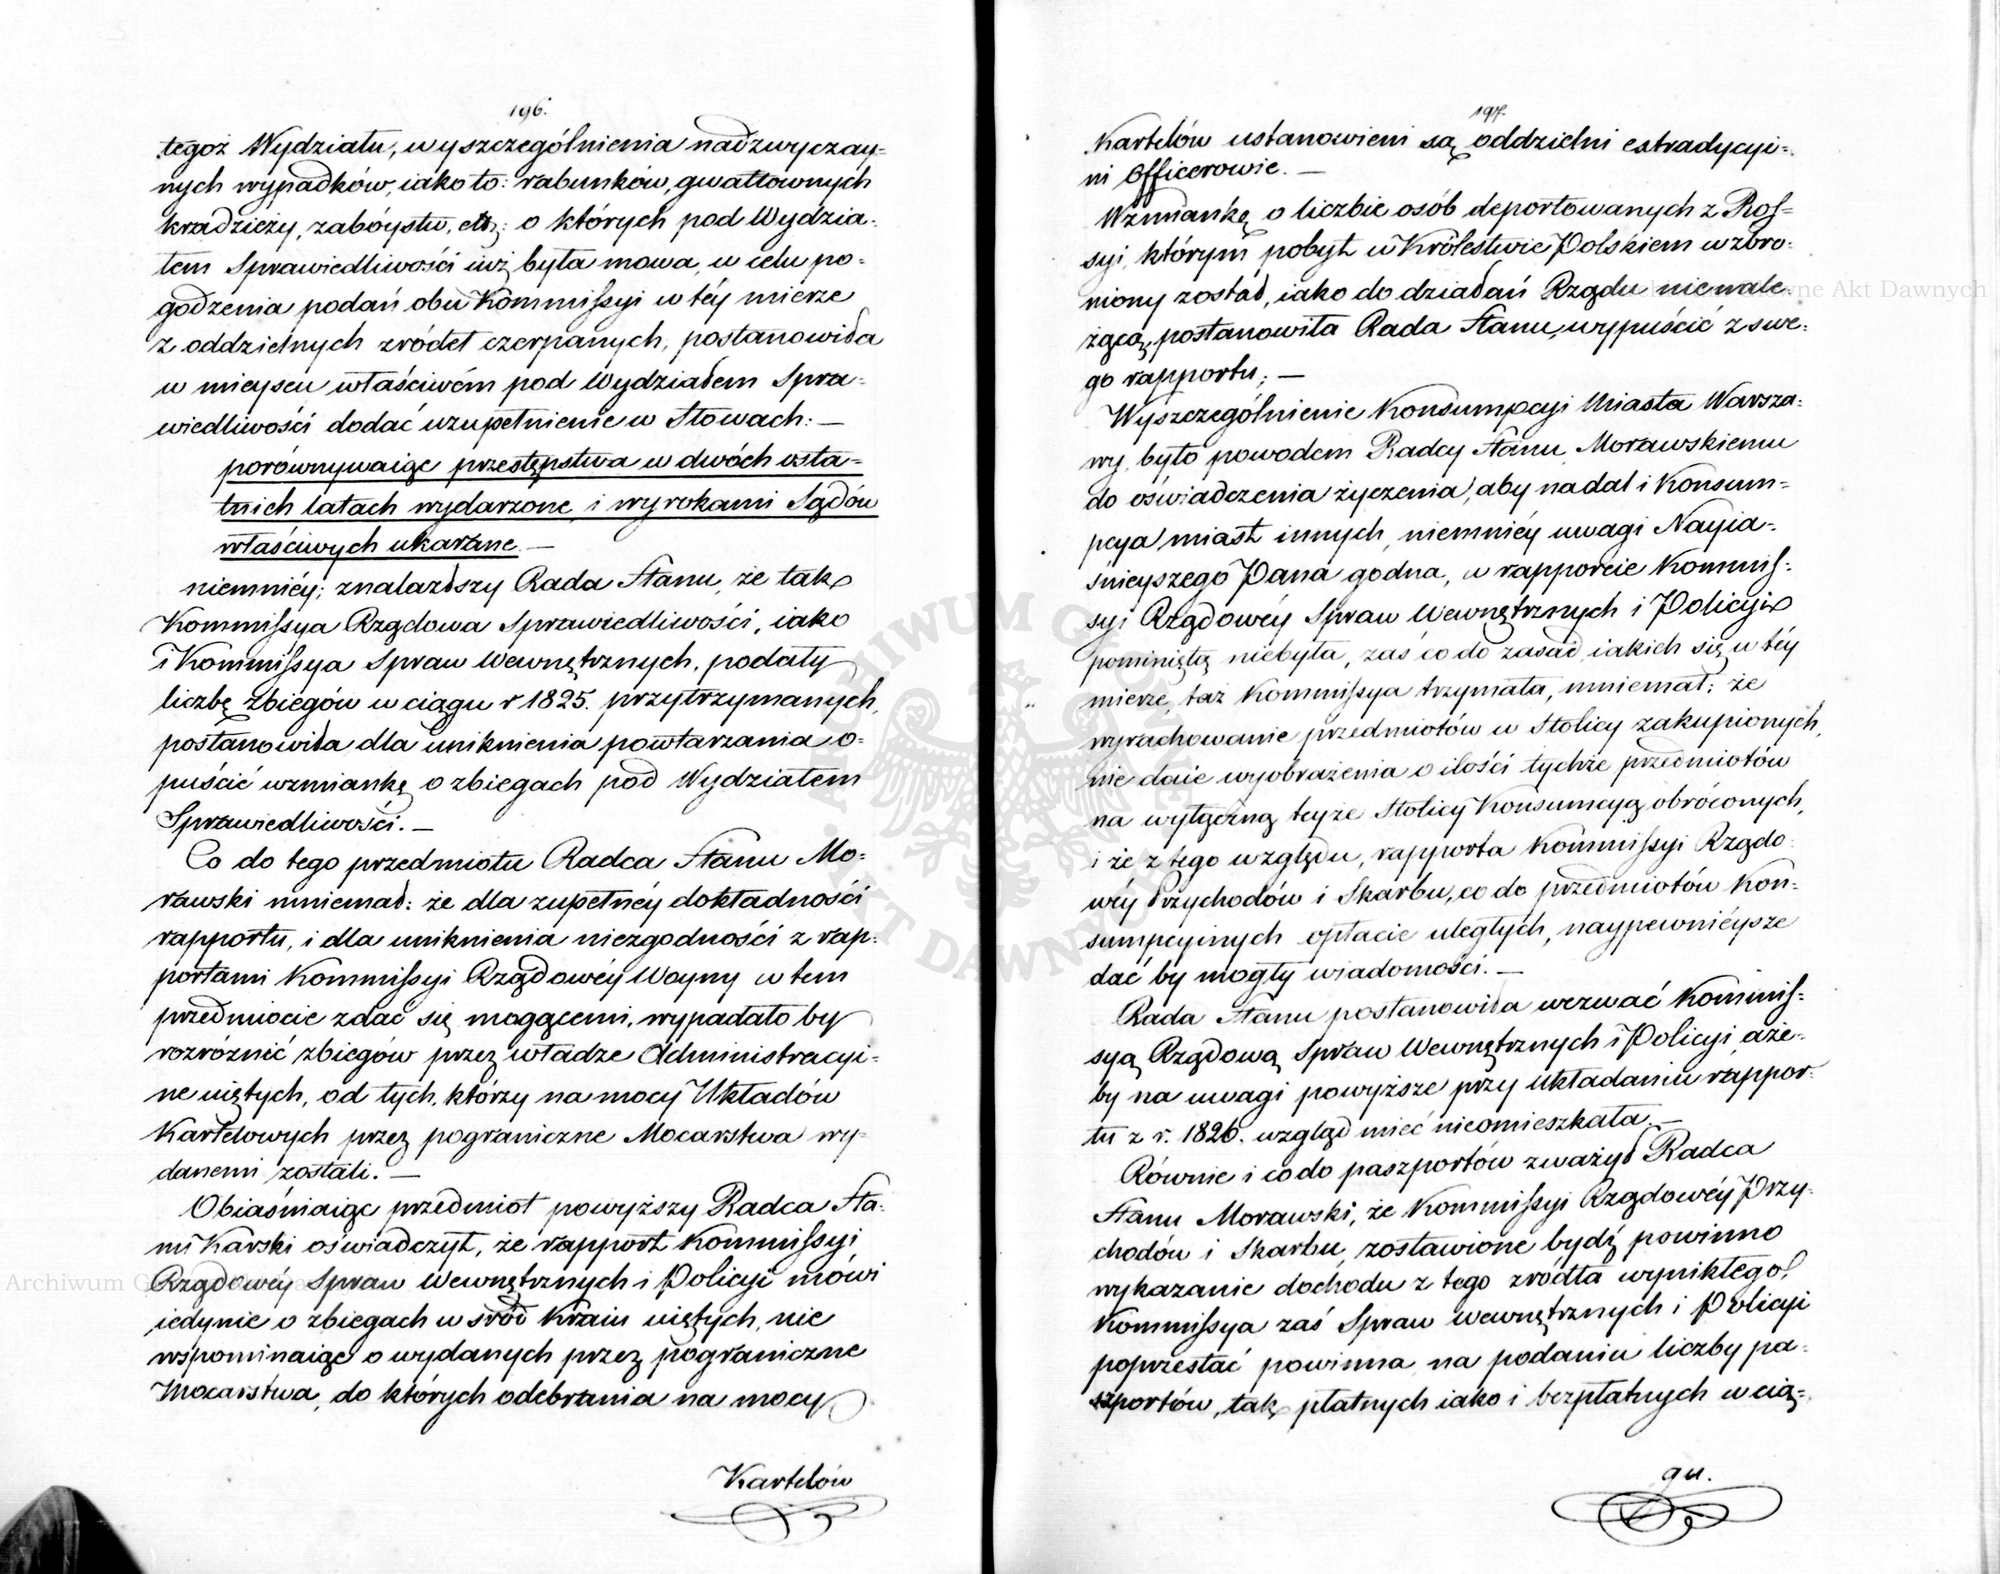 196.
tegoż Wydziału, wyszczególnienia nadzwyczay=
nych wypadków, iako to: rabunków, gwałtownych
kradzieży, zabóystw, etc: o których pod Wydzia=
łem Sprawiedliwości iuż była mowa, w celu po=
godzenia podań obu Kommissyi w téy mierze
z oddzielnych zródeł czerpanych, postanowiła
w mieyscu właściwém pod Wydziałem Spra=
wiedliwości dodać uzupełnienie w Słowach: —
porównywaiąc przestępstwa w dwóch osta=
tnich latach wydarzone i wyrokami Sądów
właściwych ukarane. —
niemniéy; znalazłszy Rada Stanu, że tak
Kommissya Rządowa Sprawiedliwości, iako
i Kommissya Spraw Wewnętrznych, podały
liczbę zbiegów w ciągu r 1825. przytrzymanych,
postanowiła dla uniknienia powtarzania o=
puścić wzmiankę o zbiegach pod Wydziałem
Sprawiedliwości. —
Co do tego przedmiotu Radca Stanu Mo=
rawski mniemał: że dla zupełnéy dokładności
rapportu, i dla uniknienia niezgodności z rap=
portami Kommissyi Rządowéy Woyny w tem
przedmiocie zdać się mogącemi, wypadało by
rozróżnić zbiegów przez władze Administracyi=
ne uiętych, od tych, którzy na mocy Układów
Kartelowych przez pograniczne Mocarstwa wy=
danemi zostali. —
Obiaśniaiąc przedmiot powyższy Radca Sta=
nu Karski oświadczył, że rapport Kommissyi
Rządowéy Spraw Wewnętrznych i Policyi mówi
iedynie o zbiegach w śród Kraiu uiętych, nie
wspominaiąc o wydanych przez pograniczne
Mocarstwa, do których odebrania na mocy
Kartelów
197.
Kartelów ustanowieni są oddzielni extradycyi=
ni Officerowie. —
Wzmiankę o liczbie osób deportowanych z Ros=
syi, którym pobyt w Królestwie Polskiem wzbro=
niony został, iako do działań Rządu nienale=
żącą, postanowiła Rada Stanu, wypuścić z swe=
go rapportu; —
Wyszczególnienie Konsumpcyi Miasta Warsza=
wy, było powodem Radcy Stanu Morawskiemu
do oświadczenia życzenia, aby nadal i Konsum=
pcya miast innych, niemniéy uwagi Nayia=
śnieyszego Pana godna, w rapporcie Kommis=
syi Rządowéy Spraw Wewnętrznych i Policyi
pominiętą niebyła, zaś co do zasad, iakich się w téy
mierze, taż Kommissya trzymała, mniemał: że
wyrachowanie przedmiotów w Stolicy zakupionych,
nie daie wyobrażenia o ilości tychże przedmiotów
na wyłączną teyże Stolicy Konsumcyą obróconych,
i że z tego względu, rapporta Kommissyi Rządo=
wéy Przychodów i Skarbu, co do przedmiotów Kon=
sumpcyinych opłacie uległych, naypewniéysze
dać by mogły wiadomości. —
Rada Stanu postanowiła wezwać Kommis=
syą Rządową Spraw Wewnętrznych i Policyi, aże=
by na uwagi powyższe przy układaniu rappor=
tu z r. 1826. wzgląd mieć nieomieszkała. —
Równie i co do paszportów zważył Radca
Stanu Morawski, że Kommissyi Rządowéy Przy=
chodów i Skarbu, zostawione bydź powinno
wykazanie dochodu z tego zródła wynikłego,
Kommissya zaś Spraw Wewnętrznych i Policyi
poprzestać powinna na podaniu liczby pa=
szportów, tak płatnych iako i bezpłatnych w cią=
gu.
ARCHIWUM GŁÓWNE AKT DAWNYCH
Archiwum G
ne Akt Dawnych